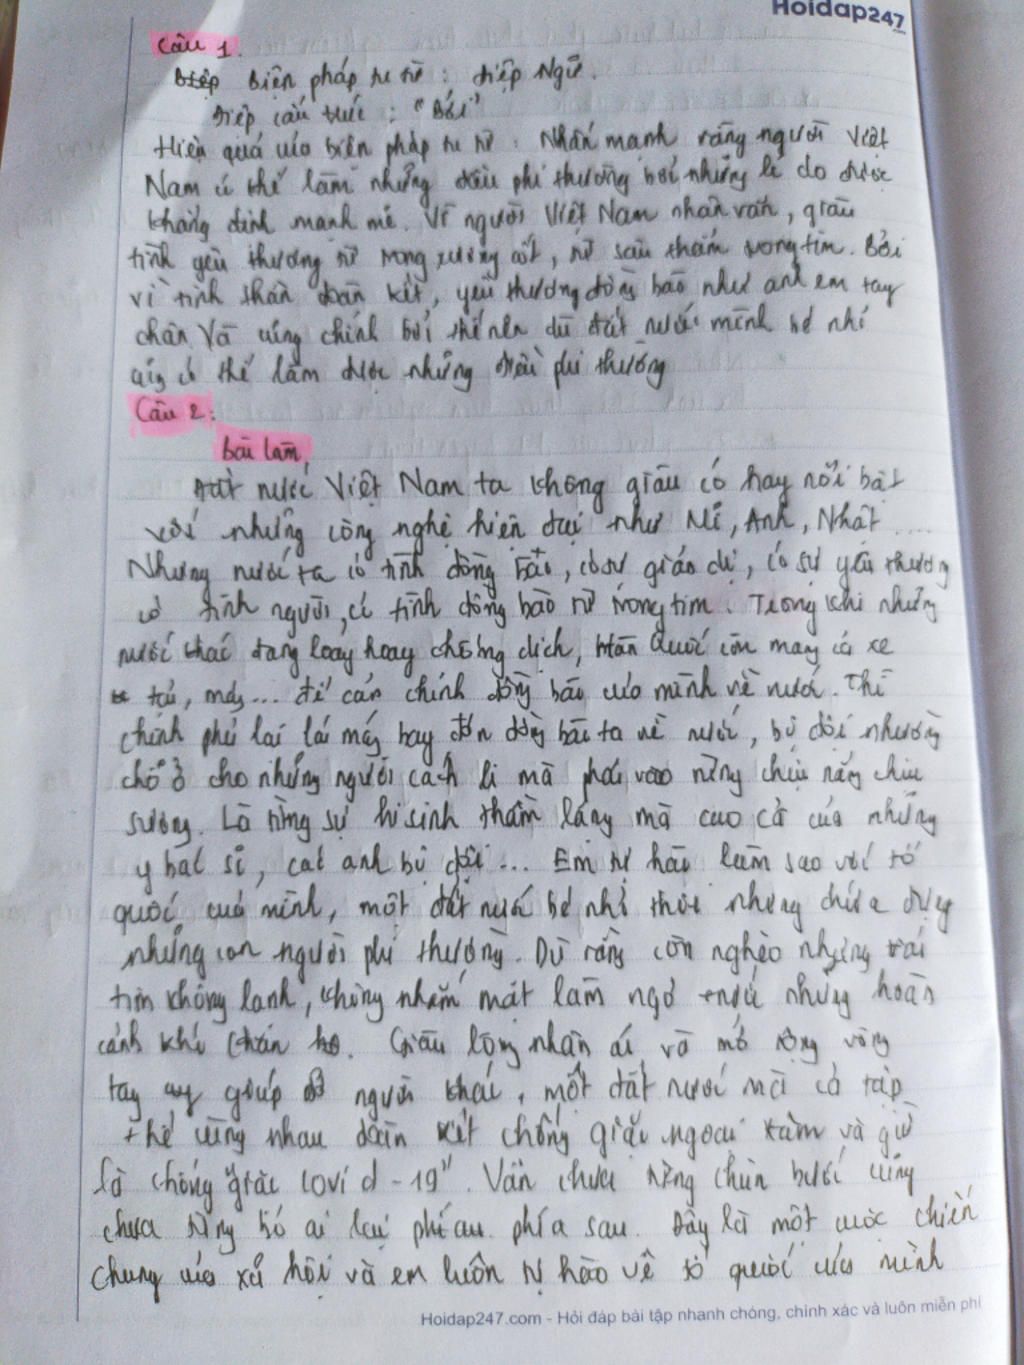 Hoidap247
.com
Câu 1.
Biện pháp tu từ : điệp Ngữ.
Điệp cấu trúc : "Bởi"
Hiệu quả của biện pháp tu từ : Nhấn mạnh rằng người Việt
Nam có thể làm những điều phi thường bởi những lí do được
khẳng định mạnh mẽ. Vì người Việt Nam nhân văn, giàu
tình yêu thương từ trong xương cốt, từ sâu thẳm trong tim. Bởi
vì tinh thần đoàn kết, yêu thương đồng bào như anh em tay
chân Và cũng chính bởi thế nên dù đất nước mình bé nhỏ
cũng có thể làm được những điều phi thường
Câu 2:
Bài làm
Đất nước Việt Nam ta không giàu có hay nổi bật
với những công nghệ hiện đại như Mĩ, Anh, Nhật ....
Nhưng nước ta có tình đồng bào, có sự giáo dục, có sự yêu thương
có tình người, có tình đồng bào từ trong tim. Trong khi những
nước khác đang loay hoay chống dịch, Hàn Quốc còn mang cả xe
tải, máy... để cản chính đồng bào của mình về nước. Thì
chính phủ lại lái máy bay đón đồng bào ta về nước, bộ đội nhường
chỗ ở cho những người cách li mà phải vào rừng chịu nắng chịu
sương. Là từng sự hi sinh thầm lặng mà cao cả của những
y bác sĩ, các anh bộ đội ... Em tự hào làm sao với tổ
quốc của mình, một đất nước bé nhỏ thôi nhưng chứa đựng
những con người phi thường. Dù rằng còn nghèo nhưng trái
tim không lạnh, không nhắm mắt làm ngơ trước những hoàn
cảnh khó khăn. Giàu lòng nhân ái và mở rộng vòng
tay giúp người khác, một đất nước mà cả tập
thể cùng nhau đoàn kết chống giặc ngoại xâm và giờ
là chống "giặc covid-19". Vẫn chưa từng chùn bước cũng
chưa từng bỏ ai lại phía phía sau. Đây là một cuộc chiến
chung của xã hội và em luôn tự hào về tổ quốc của mình
Hoidap247.com - Hỏi đáp bài tập nhanh chóng, chính xác và luôn miễn phí